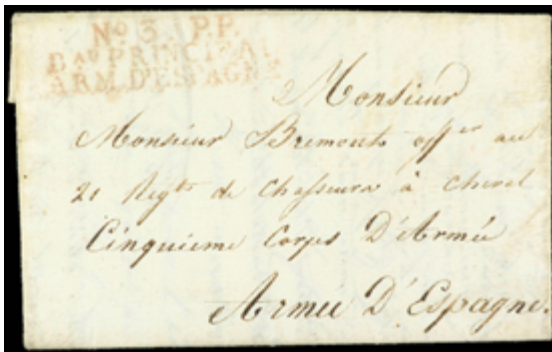 No 3. P.P.
Bau PRINCIPAL
ARM. D'ESPAGNE
Monsieur
Monsieur Bremont offer au
21 Regt de Chasseurs à Cheval
Cinquieme Corps D'Armée
Armée D'Espagne.